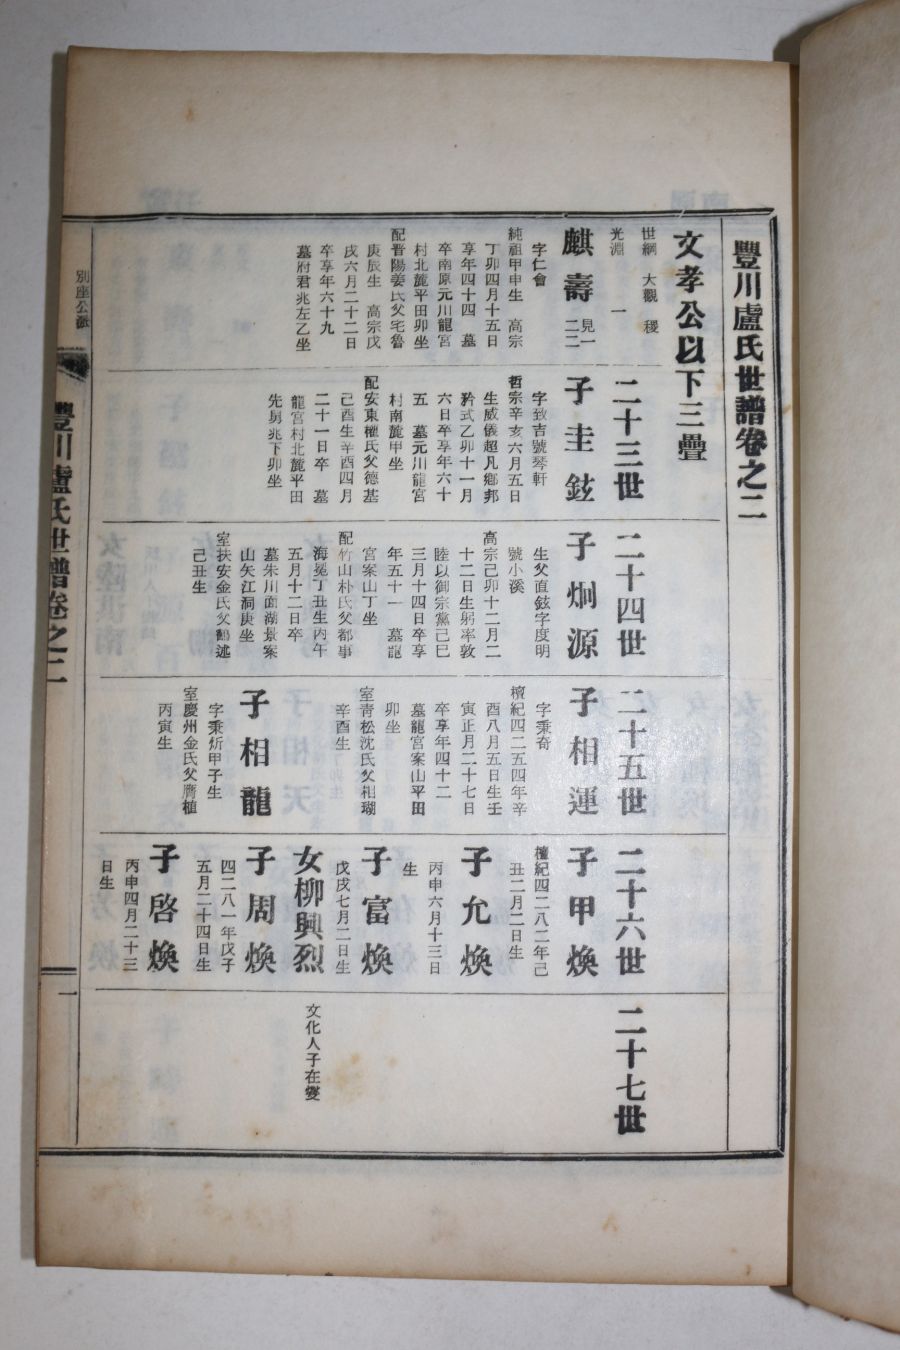 豐川盧氏世譜卷之二
文孝公以下三疊
世綱 大觀 稷
光淵 一
麒壽 見一二二
字仁會
純祖甲申生 高宗
丁卯四月十五日
享年四十四 墓
卒南原元川龍宮
村北麓平田卯坐
配晋陽姜氏父宅魯
庚辰生 高宗戊
戌六月二十二日
卒享年六十九
墓府君兆左乙坐
二十三世
子圭鉉
字致吉號琴軒
哲宗辛亥六月五日
生威儀超凡鄉邦
矜式乙卯十一月
六日卒享年六十
五 墓元川龍宮
村南麓甲坐
配安東權氏父德基
己酉生辛酉四月
二十一日卒 墓
龍宮村北麓平田
先男兆下卯坐
二十四世
子炯源
生父直鉉字度明
號小溪
高宗己卯十二月二
十二日生躬率敦
睦以御宗黨己巳
三月十四日卒享
年五十一 墓龍
宮案山丁坐
配竹山朴氏父都事
海冕丁丑生丙午
五月十二日卒
墓朱川面湖景案
山矢江洞庚坐
室扶安金氏父鶴述
己丑生
二十五世
子相運
字秉奇
檀紀四二五四年辛
酉八月五日生壬
寅正月二十七日
卒享年四十二
墓龍宮案山平田
卯坐
室靑松沈氏父相瑚
辛酉生
子相龍
字秉炘甲子生
室慶州金氏父膺植
丙寅生
二十六世
子甲煥
檀紀四二八二年己
丑二月二日生
子允煥
丙申六月十三日
生
子富煥
戊戌七月二日生
女柳興烈
子周煥
四二八一年戊子
五月二十四日生
子啓煥
丙申四月二十三
日生
二十七世
文化人子在燮
別座公派
豐川盧氏世譜卷之二
一